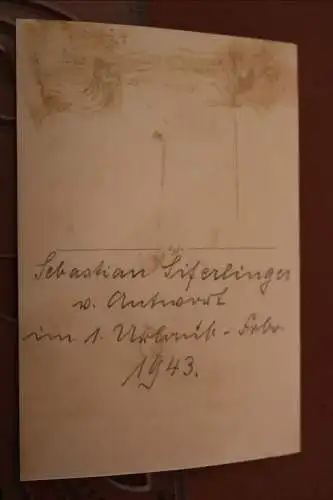 Sebastian Siferlinger
v. Antwort
im 1. Urlaub - Febr.
1943.